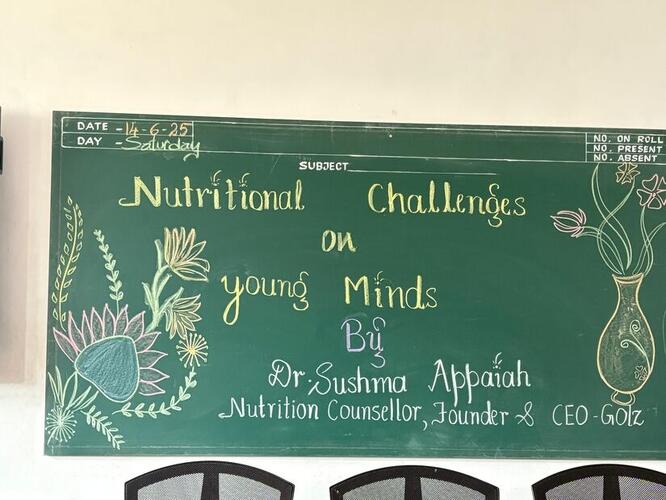 DATE - 14-6-25
DAY - Saturday
NO. ON ROLL
NO. PRESENT
NO. ABSENT
SUBJECT
Nutritional Challenges
on
young Minds
By
Dr. Sushma Appaiah
Nutrition Counsellor, Founder & CEO - GOlz